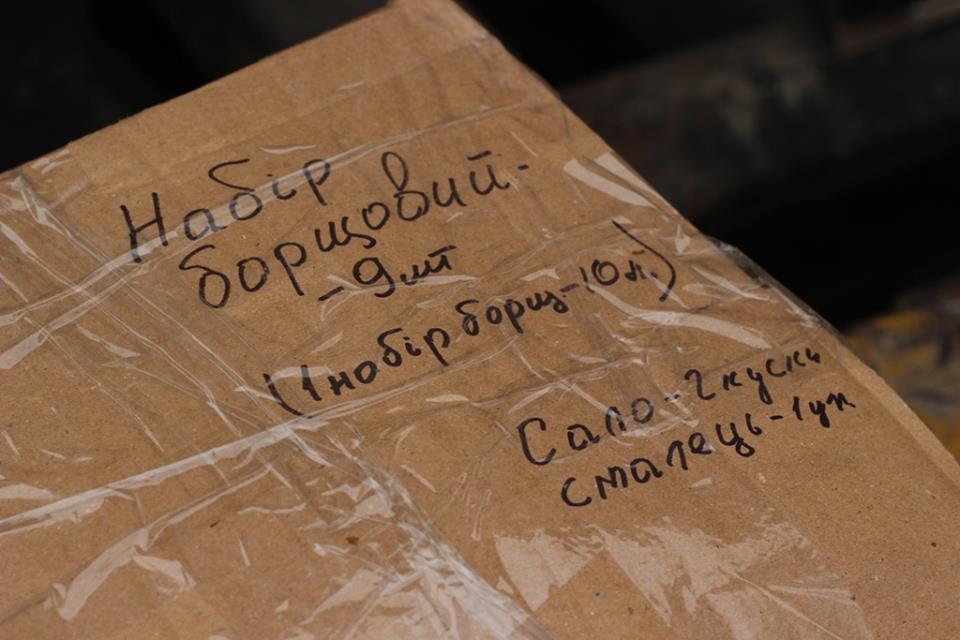 Набір
борщовий-
-9шт
(1 набір борщ-10л.)
Сало-2 куски
смалець-1уп.